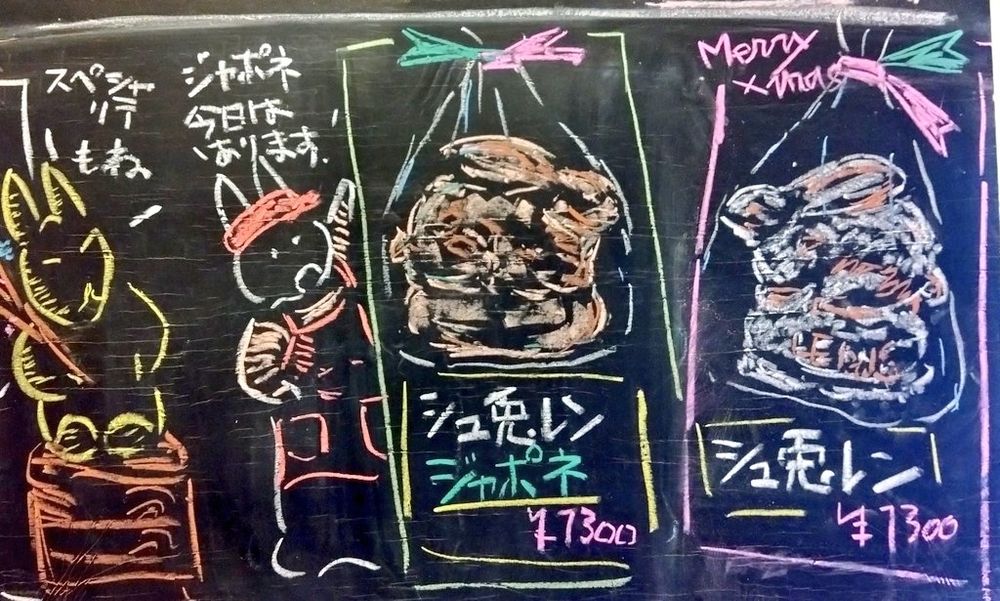 スペシャ
リテ
もね
ジャポネ
今日は
あります。
シュ兎レン
ジャポネ
¥1300
Merry
xmas
シュ兎レン
¥1300